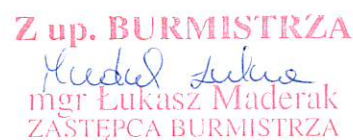 Z up. BURMISTRZA
mgr Łukasz Maderak
ZASTĘPCA BURMISTRZA